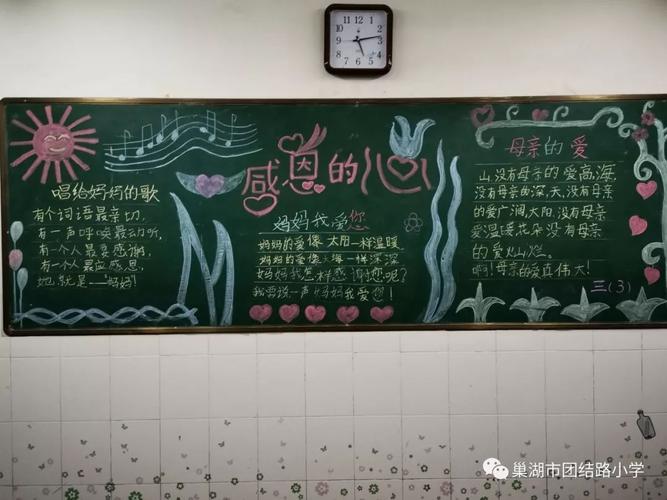 感恩的心
唱给妈妈的歌
有个词语最亲切,
有一声呼唤最动听,
有一个人最要感谢,
有一个人最应感恩,
她,就是——妈妈!
妈妈我爱您
妈妈的爱像太阳一样温暖
妈妈的爱像大海一样深深
妈妈我怎样感谢您呢?
我要说一声妈妈我爱您!
母亲的爱
山,没有母亲的爱高,海,
没有母亲的深,天,没有母亲
的爱广阔,太阳,没有母亲
爱温暖,花朵,没有母亲
的爱灿烂。
啊!母亲的爱真伟大!
三(3)
巢湖市团结路小学